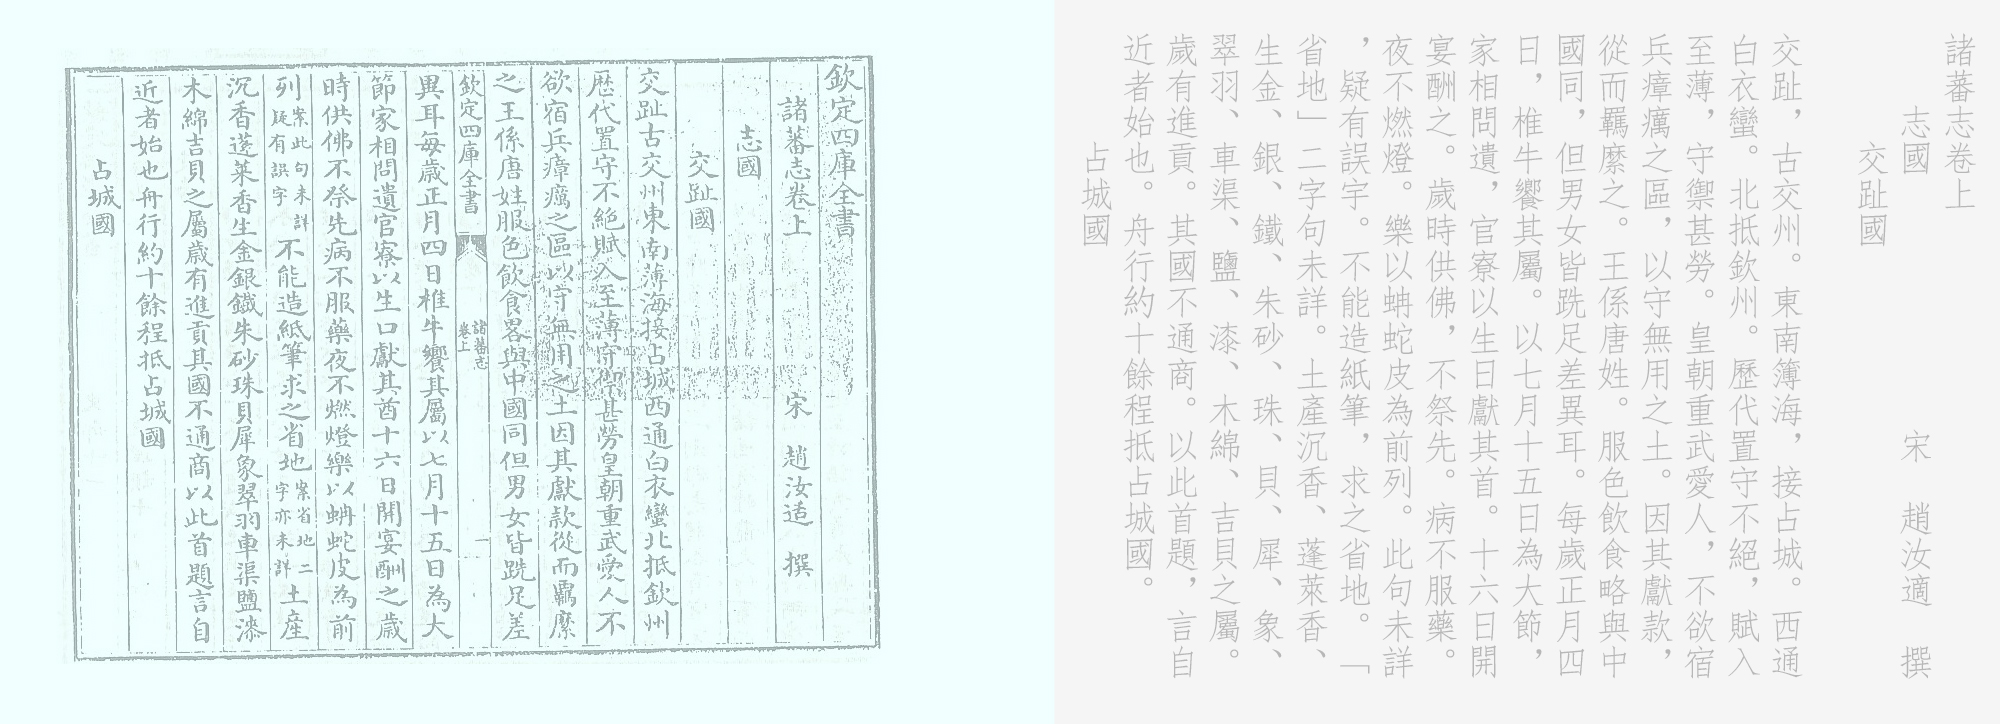 欽定四庫全書
諸蕃志卷上 宋 趙汝适 撰
志國
交趾國
交趾古交州東南薄海接占城西通白衣蠻北抵欽州
歴代置守不絶賦入至薄守禦甚勞皇朝重武愛人不
欲宿兵瘴癘之區以守無用之土因其獻款從而羈縻
之王係唐姓服色飲食畧與中國同但男女皆跣足差
欽定四庫全書 諸蕃志 卷上 一
異耳每歲正月四日椎牛饗其屬以七月十五日為大
節家相問遺官寮以生口獻其酋十六日開宴酬之歲
時供佛不祭先病不服藥夜不燃燈樂以蚺蛇皮為前
列案此句未詳疑有誤字不能造紙筆求之省地案省地二字亦未詳土産
沉香蓬萊香生金銀鐵朱砂珠貝犀象翠羽車渠鹽漆
木綿吉貝之屬歲有進貢其國不通商以此首題言自
近者始也舟行約十餘程抵占城國
占城國
諸蕃志卷上
志國 宋 趙汝適 撰
交趾國
交趾，古交州。東南簿海，接占城。西通
白衣蠻。北抵欽州。歷代置守不絕，賦入
至薄，守禦甚勞。皇朝重武愛人，不欲宿
兵瘴癘之區，以守無用之土。因其獻款，
從而羈縻之。王係唐姓。服色飲食略與中
國同，但男女皆跣足差異耳。每歲正月四
日，椎牛饗其屬。以七月十五日為大節，
家相問遺，官寮以生日獻其首。十六日開
宴酬之。歲時供佛，不祭先。病不服藥。
夜不燃燈。樂以蚺蛇皮為前列。此句未詳
，疑有誤宇。不能造紙筆，求之省地。「
省地」二字句未詳。土產沉香、蓬萊香、
生金、銀、鐵、朱砂、珠、貝、犀、象、
翠羽、車渠、鹽、漆、木綿、吉貝之屬。
歲有進貢。其國不通商。以此首題，言自
近者始也。舟行約十餘程抵占城國。
占城國